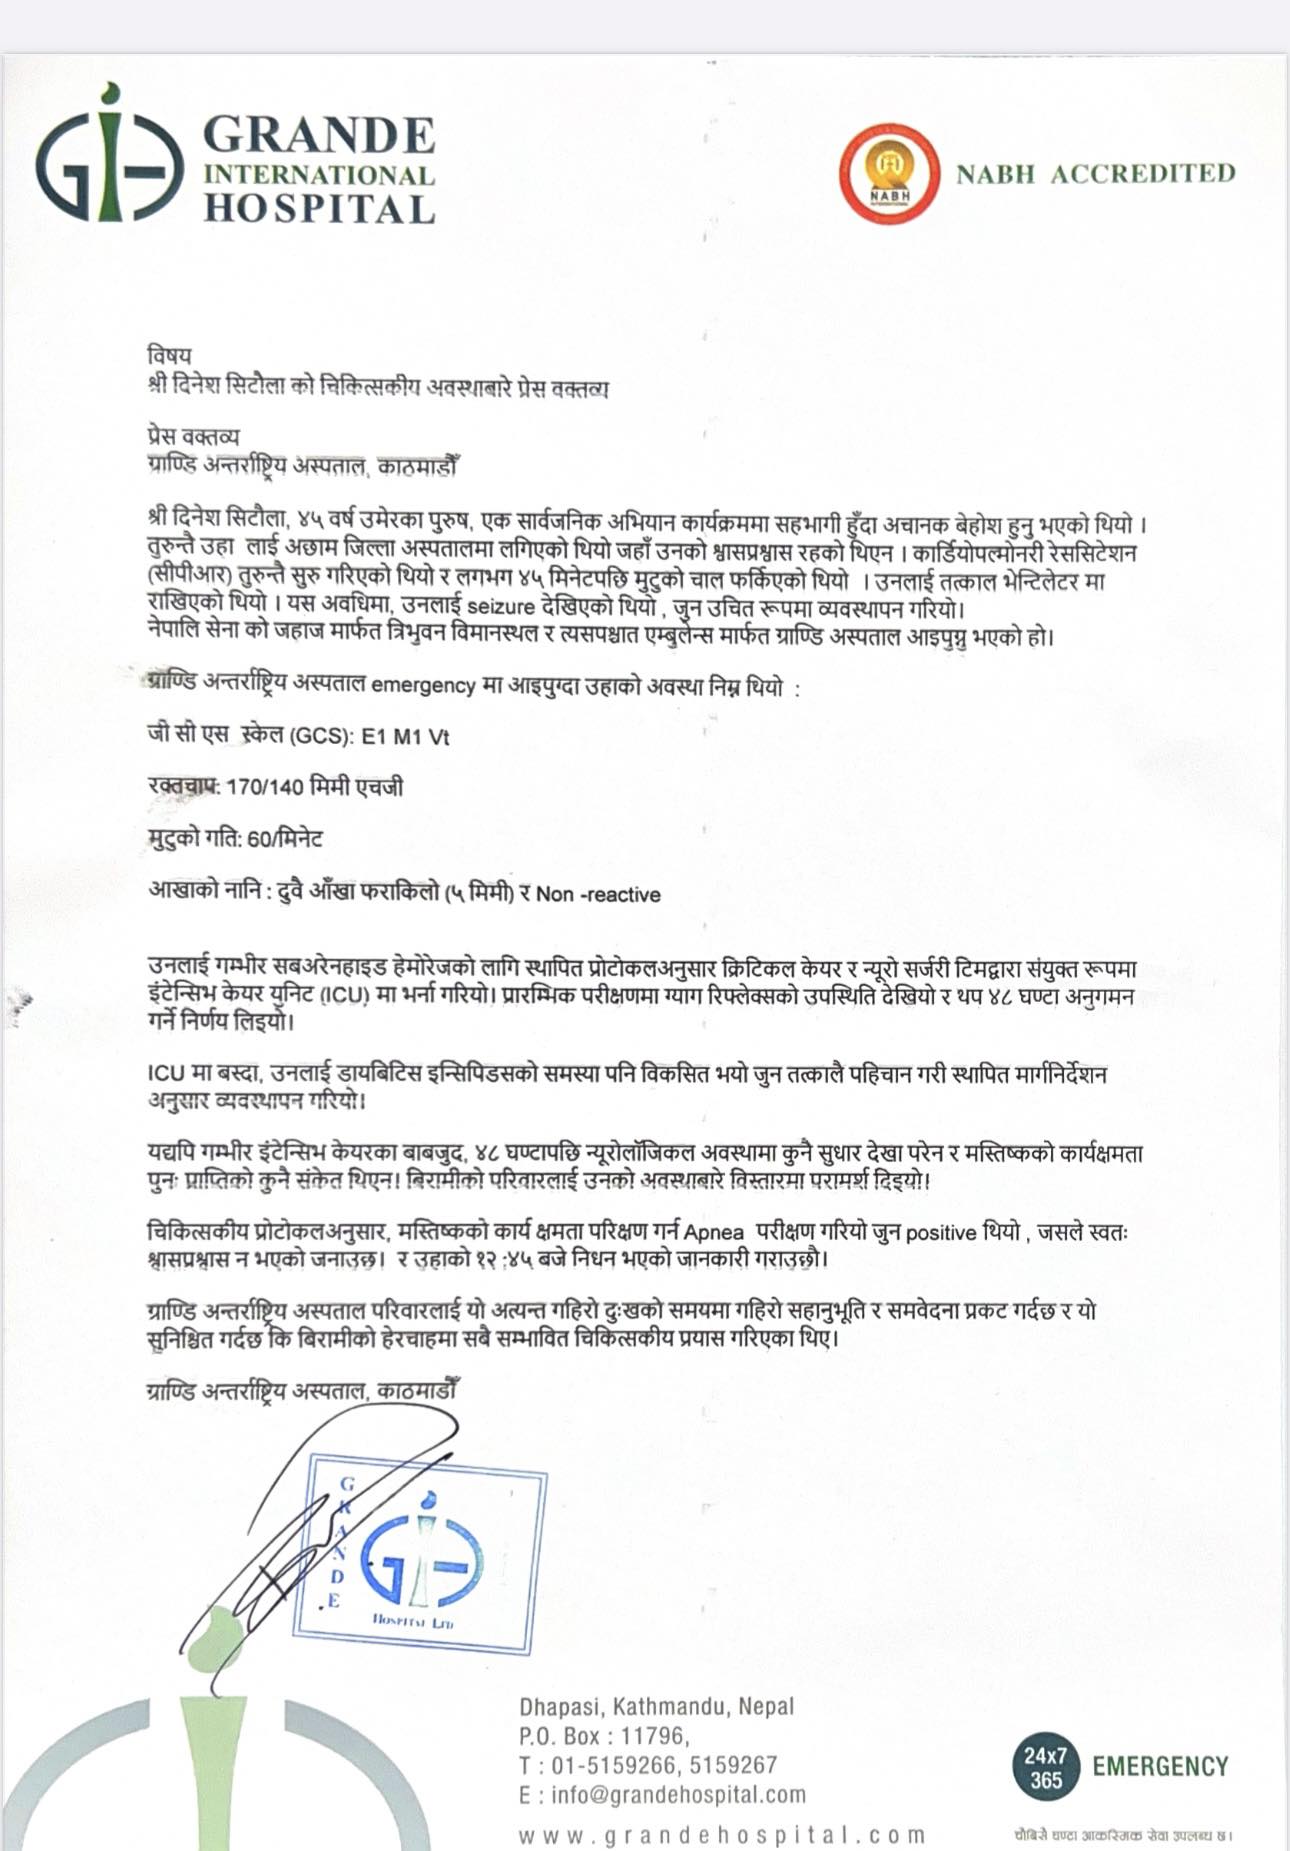 GRANDE
INTERNATIONAL
HOSPITAL
NABH
NABH ACCREDITED
विषय
श्री दिनेश सिटौला को चिकित्सकीय अवस्थाबारे प्रेस वक्तव्य
प्रेस वक्तव्य
ग्राण्डि अन्तर्राष्ट्रिय अस्पताल, काठमाडौँ
श्री दिनेश सिटौला, ४५ वर्ष उमेरका पुरुष, एक सार्वजनिक अभियान कार्यक्रममा सहभागी हुँदा अचानक बेहोश हुनु भएको थियो ।
तुरुन्तै उहा लाई अछाम जिल्ला अस्पतालमा लगिएको थियो जहाँ उनको श्वासप्रश्वास रहको थिएन । कार्डियोपल्मोनरी रेससिटेशन
(सीपीआर) तुरुन्तै सुरु गरिएको थियो र लगभग ४५ मिनेटपछि मुटुको चाल फर्किएको थियो । उनलाई तत्काल भेन्टिलेटर मा
राखिएको थियो । यस अवधिमा, उनलाई seizure देखिएको थियो , जुन उचित रूपमा व्यवस्थापन गरियो।
नेपालि सेना को जहाज मार्फत त्रिभुवन विमानस्थल र त्यसपश्चात एम्बुलेन्स मार्फत ग्राण्डि अस्पताल आइपुग्नु भएको हो।
ग्राण्डि अन्तर्राष्ट्रिय अस्पताल emergency मा आइपुग्दा उहाको अवस्था निम्न थियो :
जी सी एस स्केल (GCS): E1 M1 Vt
रक्तचाप: 170/140 मिमी एचजी
मुटुको गति: 60/मिनेट
आखाको नानि : दुवै आँखा फराकिलो (५ मिमी) र Non -reactive
उनलाई गम्भीर सबअरेनहाइड हेमोरेजको लागि स्थापित प्रोटोकलअनुसार क्रिटिकल केयर र न्यूरो सर्जरी टिमद्वारा संयुक्त रूपमा
इंटेन्सिभ केयर युनिट (ICU) मा भर्ना गरियो। प्रारम्भिक परीक्षणमा ग्याग रिफ्लेक्सको उपस्थिति देखियो र थप ४८ घण्टा अनुगमन
गर्ने निर्णय लिइयो।
ICU मा बस्दा, उनलाई डायबिटिस इन्सिपिडसको समस्या पनि विकसित भयो जुन तत्कालै पहिचान गरी स्थापित मार्गनिर्देशन
अनुसार व्यवस्थापन गरियो।
यद्यपि गम्भीर इंटेन्सिभ केयरका बाबजुद, ४८ घण्टापछि न्यूरोलॉजिकल अवस्थामा कुनै सुधार देखा परेन र मस्तिष्कको कार्यक्षमता
पुनः प्राप्तिको कुनै संकेत थिएन। बिरामीको परिवारलाई उनको अवस्थाबारे विस्तारमा परामर्श दिइयो।
चिकित्सकीय प्रोटोकलअनुसार, मस्तिष्कको कार्य क्षमता परिक्षण गर्न Apnea परीक्षण गरियो जुन positive थियो , जसले स्वतः
श्वासप्रश्वास न भएको जनाउछ। र उहाको १२ :४५ बजे निधन भएको जानकारी गराउछौ।
ग्राण्डि अन्तर्राष्ट्रिय अस्पताल परिवारलाई यो अत्यन्त गहिरो दुःखको समयमा गहिरो सहानुभूति र समवेदना प्रकट गर्दछ र यो
सुनिश्चित गर्दछ कि बिरामीको हेरचाहमा सबै सम्भावित चिकित्सकीय प्रयास गरिएका थिए।
ग्राण्डि अन्तर्राष्ट्रिय अस्पताल, काठमाडौँ
GRANDE
HOSPITAL LTD
Dhapasi, Kathmandu, Nepal
P.O. Box : 11796,
T : 01-5159266, 5159267
E : info@grandehospital.com
www.grandehospital.com
24x7
365
EMERGENCY
चौबिसै घण्टा आकस्मिक सेवा उपलब्ध छ।